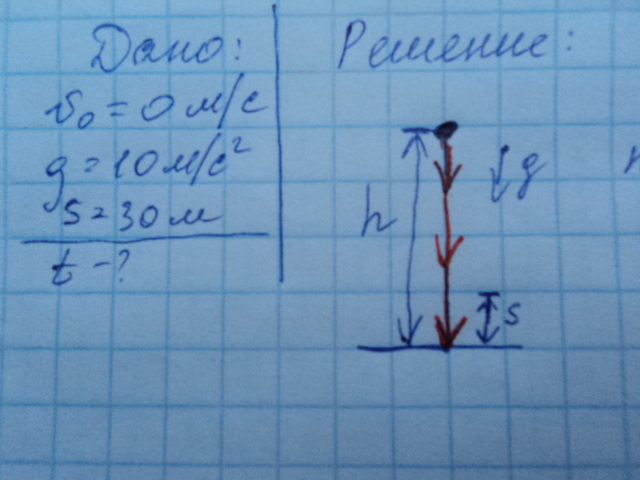 Дано:
v₀ = 0 м/с
g = 10 м/с²
s = 30 м
t - ?
Решение:
g
h
s